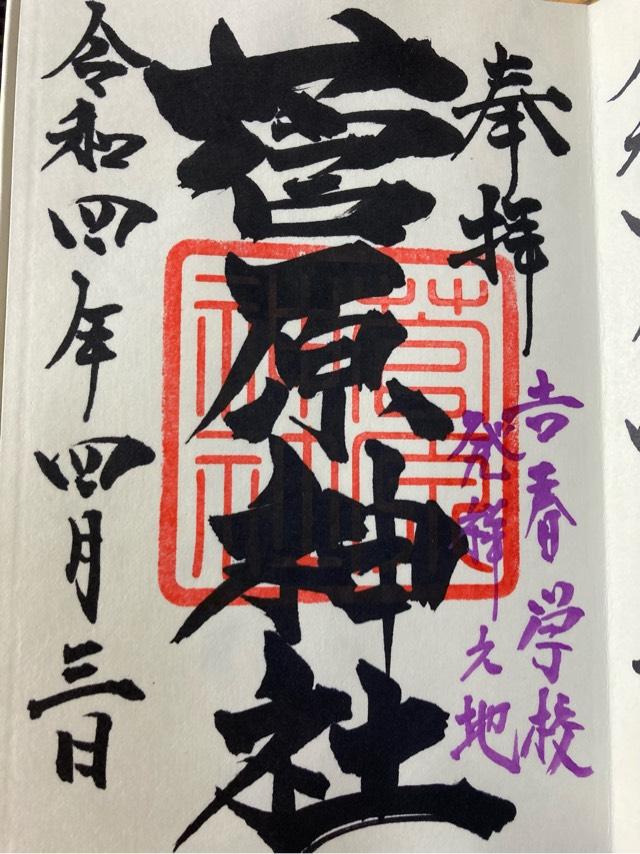 奉拝
吉香学校
発祥之地
菅原神社
菅原神社
令和四年四月三日